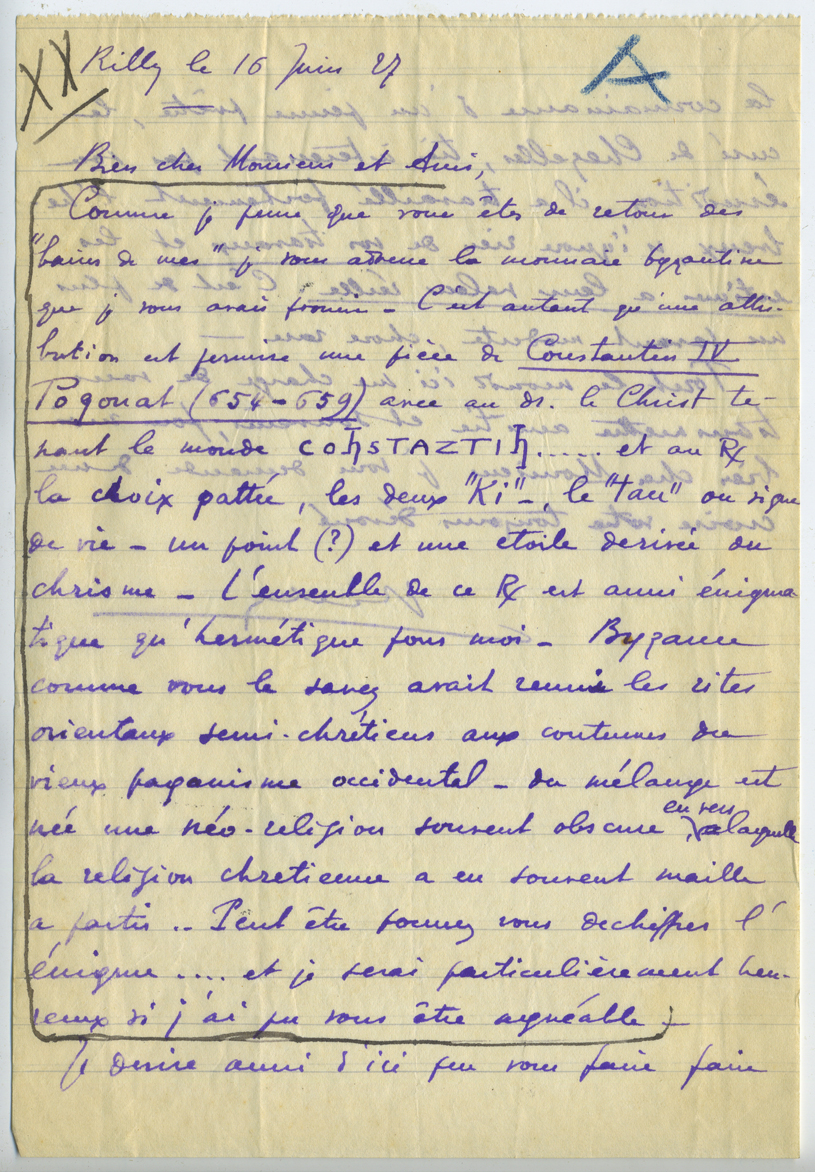 XX Rilly le 16 Juin 27
A
Bien cher Monsieur et Ami,
Comme je pense que vous êtes de retour des
"bains de mer" je vous adresse la monnaie byzantine
que je vous avais promis - C'est autant qu'une attri-
bution est permise une pièce de Constantin IV
Pogonat (654-659) avec au dr. le Christ te-
nant le monde COҔSTAZTIҔ..... et au R/
la croix pattée, les deux "Ki" -, le "tau" ou signe
de vie - un point (?) et une etoile derivée du
chrisme - L'ensemble de ce R/ est aussi énigma
tique qu'hermétique pour moi - Byzance
comme vous le savez avait reuni les rites
orientaux semi-chrétiens aux coutumes du
vieux paganisme occidental - du mélange est
née une néo-religion souvent obscure envers laquelle
la religion chretienne a eu souvent maille
a partir .. Peut être pourrez vous dechiffrer l'
énigme .... et je serai particulièrement heu-
reux si j'ai pu vous être agréable -
Je desire aussi d'ici peu vous faire faire